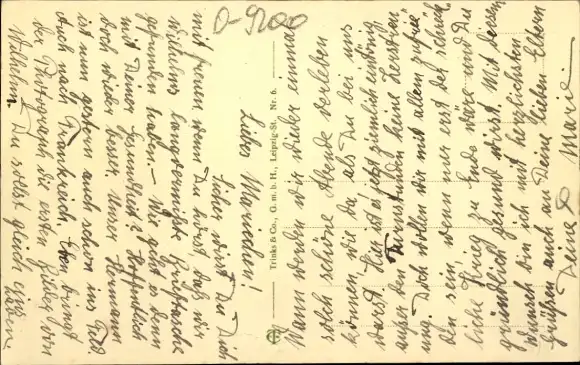 0-9200
Liebes Mariechen!
Sicher wirst Du Dich
mit freuen, wenn Du hörst, daß wir
Wilhelms langvermißte Brieftasche
gefunden haben. – Wie geht es denn
mit Deiner Gesundheit? Hoffentlich
doch wieder besser. Unser Hermann
ist nun gestern auch schon ins Feld.
Auch nach Frankreich. Eben bringt
der Photograph die ersten Bilder von
Wilhelm. Du sollst gleich eins
haben.
Trinks & Co., G. m. b. H., Leipzig-St. Nr. 6.
Wann werden wir wieder einmal
solch schöne Abende verleben
können wie da, als Du bei uns
warst. Hier ist es jetzt ziemlich eintönig
außer den Turnstunden keine Zerstreu-
ung. Doch wollen wir mit allem zufrie-
den sein, wenn nur erst der schreck-
liche Krieg zu Ende wäre und Du
gründlich gesund wirst. Mit diesem
Wunsch bin ich mit herzlichsten
Grüßen auch an Deine lieben Eltern
Deine
Marie.